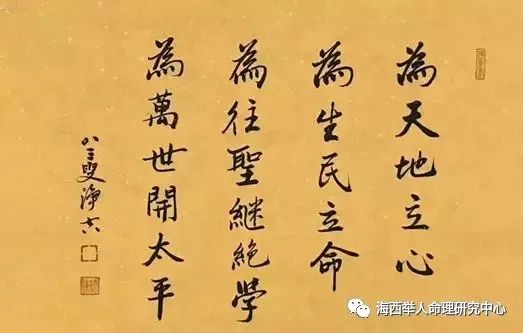 為天地立心
為生民立命
為往聖繼絕學
為萬世開太平
八三叟淨空
海西举人命理研究中心